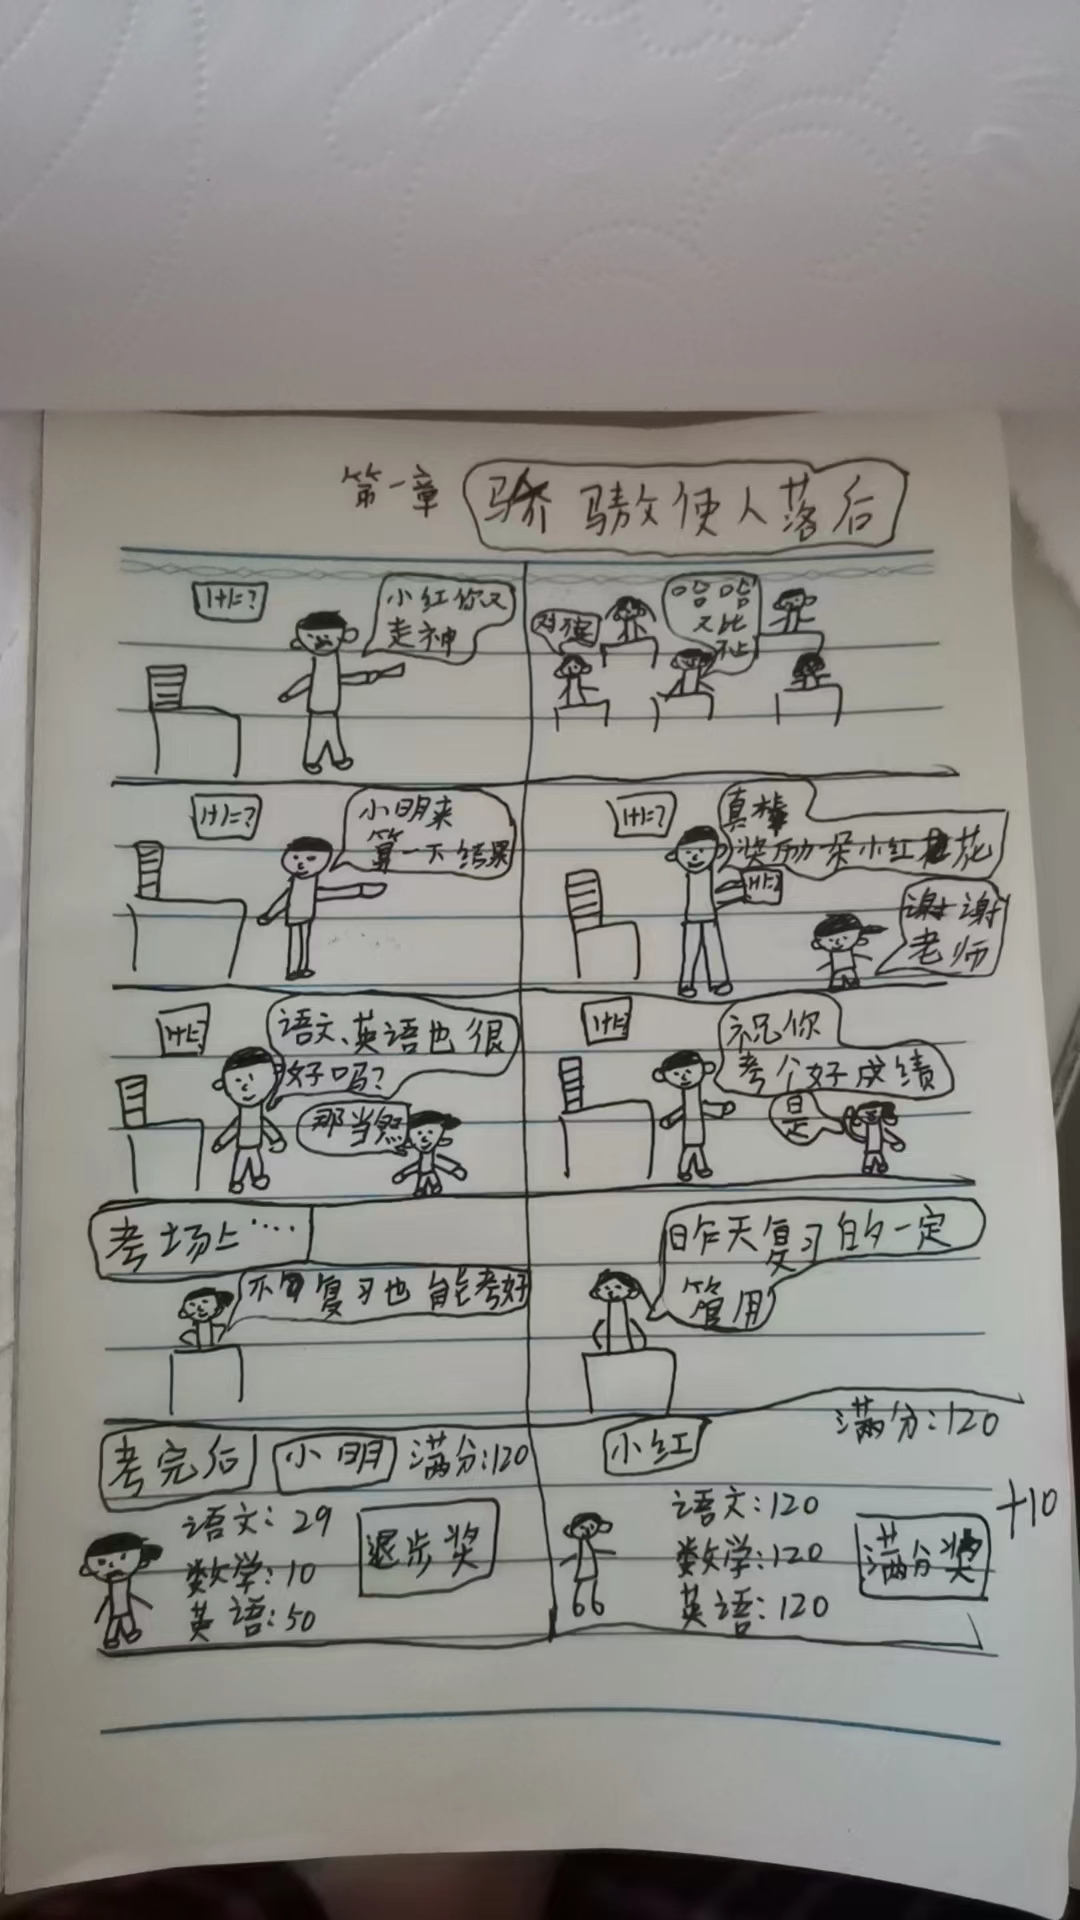 第一章 骄骜使人落后
1+1=?
小红你又
走神
哈哈
又比
1+1=?
小明来
算一下结果
1+1=?
真棒
奖励朵小红花
1+1=2
谢谢
老师
1+1=?
语文、英语也很
好吗?
那当然
1+1=?
祝你
考个好成绩
是
考场上····
复习也能考好
昨天复习的一定
管用
考完后 小明 满分:120
语文: 29
数学: 10
英语: 50
退步奖
小红
满分:120
语文: 120
数学: 120
英语: 120
满分奖
+10